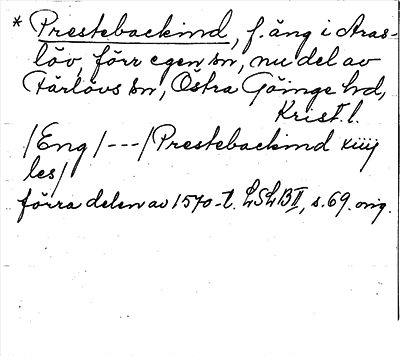 * Prestebackind, f. äng i Aras-
löv, förr egen sn, nu del av
Färlövs sn, Östra Göinge hd,
Krist. l.
/Eng/---/Prestebackind xiiij
les/
förra delen av 1570-t. LSLB II, s. 69. orig.